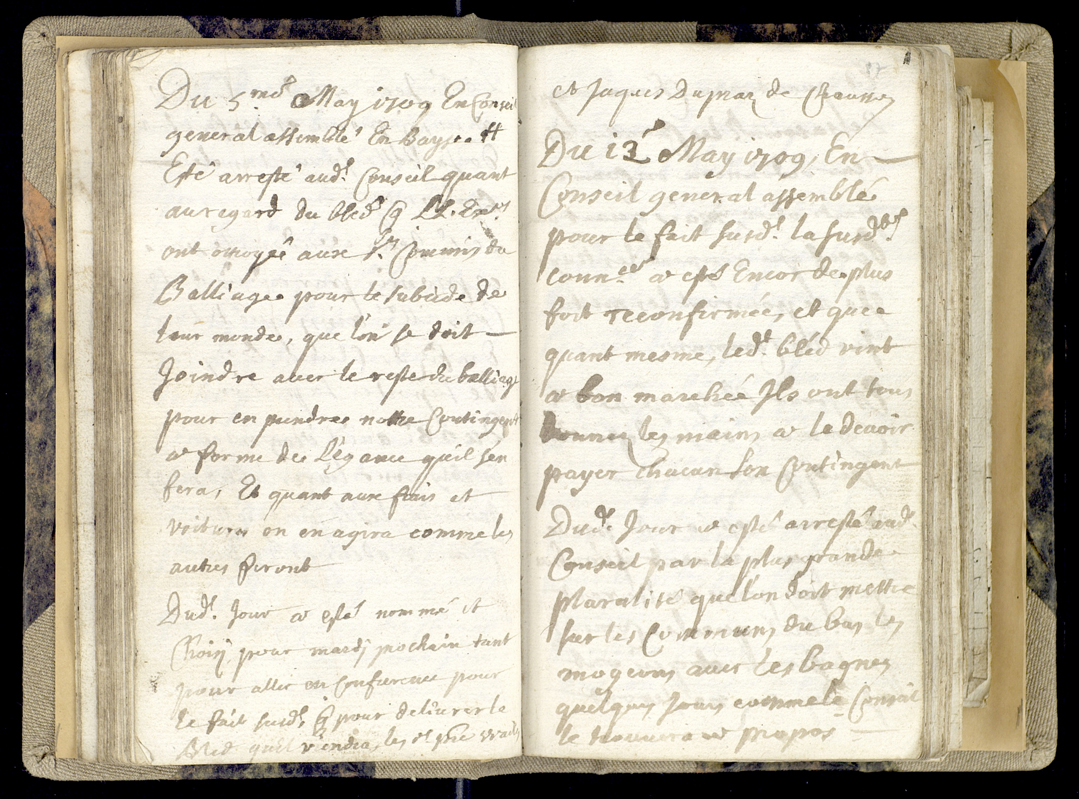 Du 5.me May 1709 En Conseil
general assemblé En Bayse. #
Esté arresté aud.t Conseil quant
au regard du bled q LL. Ex.ces
ont ottroyée aux S.rs Commis du
Balliage pour le subcide de
tout monde, que l'on se doit
Joindre avec le reste du balliage
pour en prendre nottre Contingent
a forme de l'Egance quil sen
fera, Et quant aux frais et
voitures on en agira comme les
autres feront
Dud.t Jour a esté nommé et
Choisÿ pour mardÿ prochain tant
pour aller en Conference pour
le fait susd.t q pour delivrer le
Bled quil viendra, les
et Jaques Dupraz de
Du 12 May 1709, En
Conseil general assemblé
pour le fait susd.t la susd.te
conn.ce a esté Encor de plus
fort reconfirmée, et que
quant mesme, led.t bléd vint
a bon marchée Ils ont tous
donné les mains a le devoir
payer chacun son Contingent
Dud.t Jour a esté arresté aud.t
Conseil par la plus grande
pluralité que l'on doit mettre
sur les Communs du bas les
mogeons avec les bagues
quelques Jours comme le Conseil
le trouvera a propos